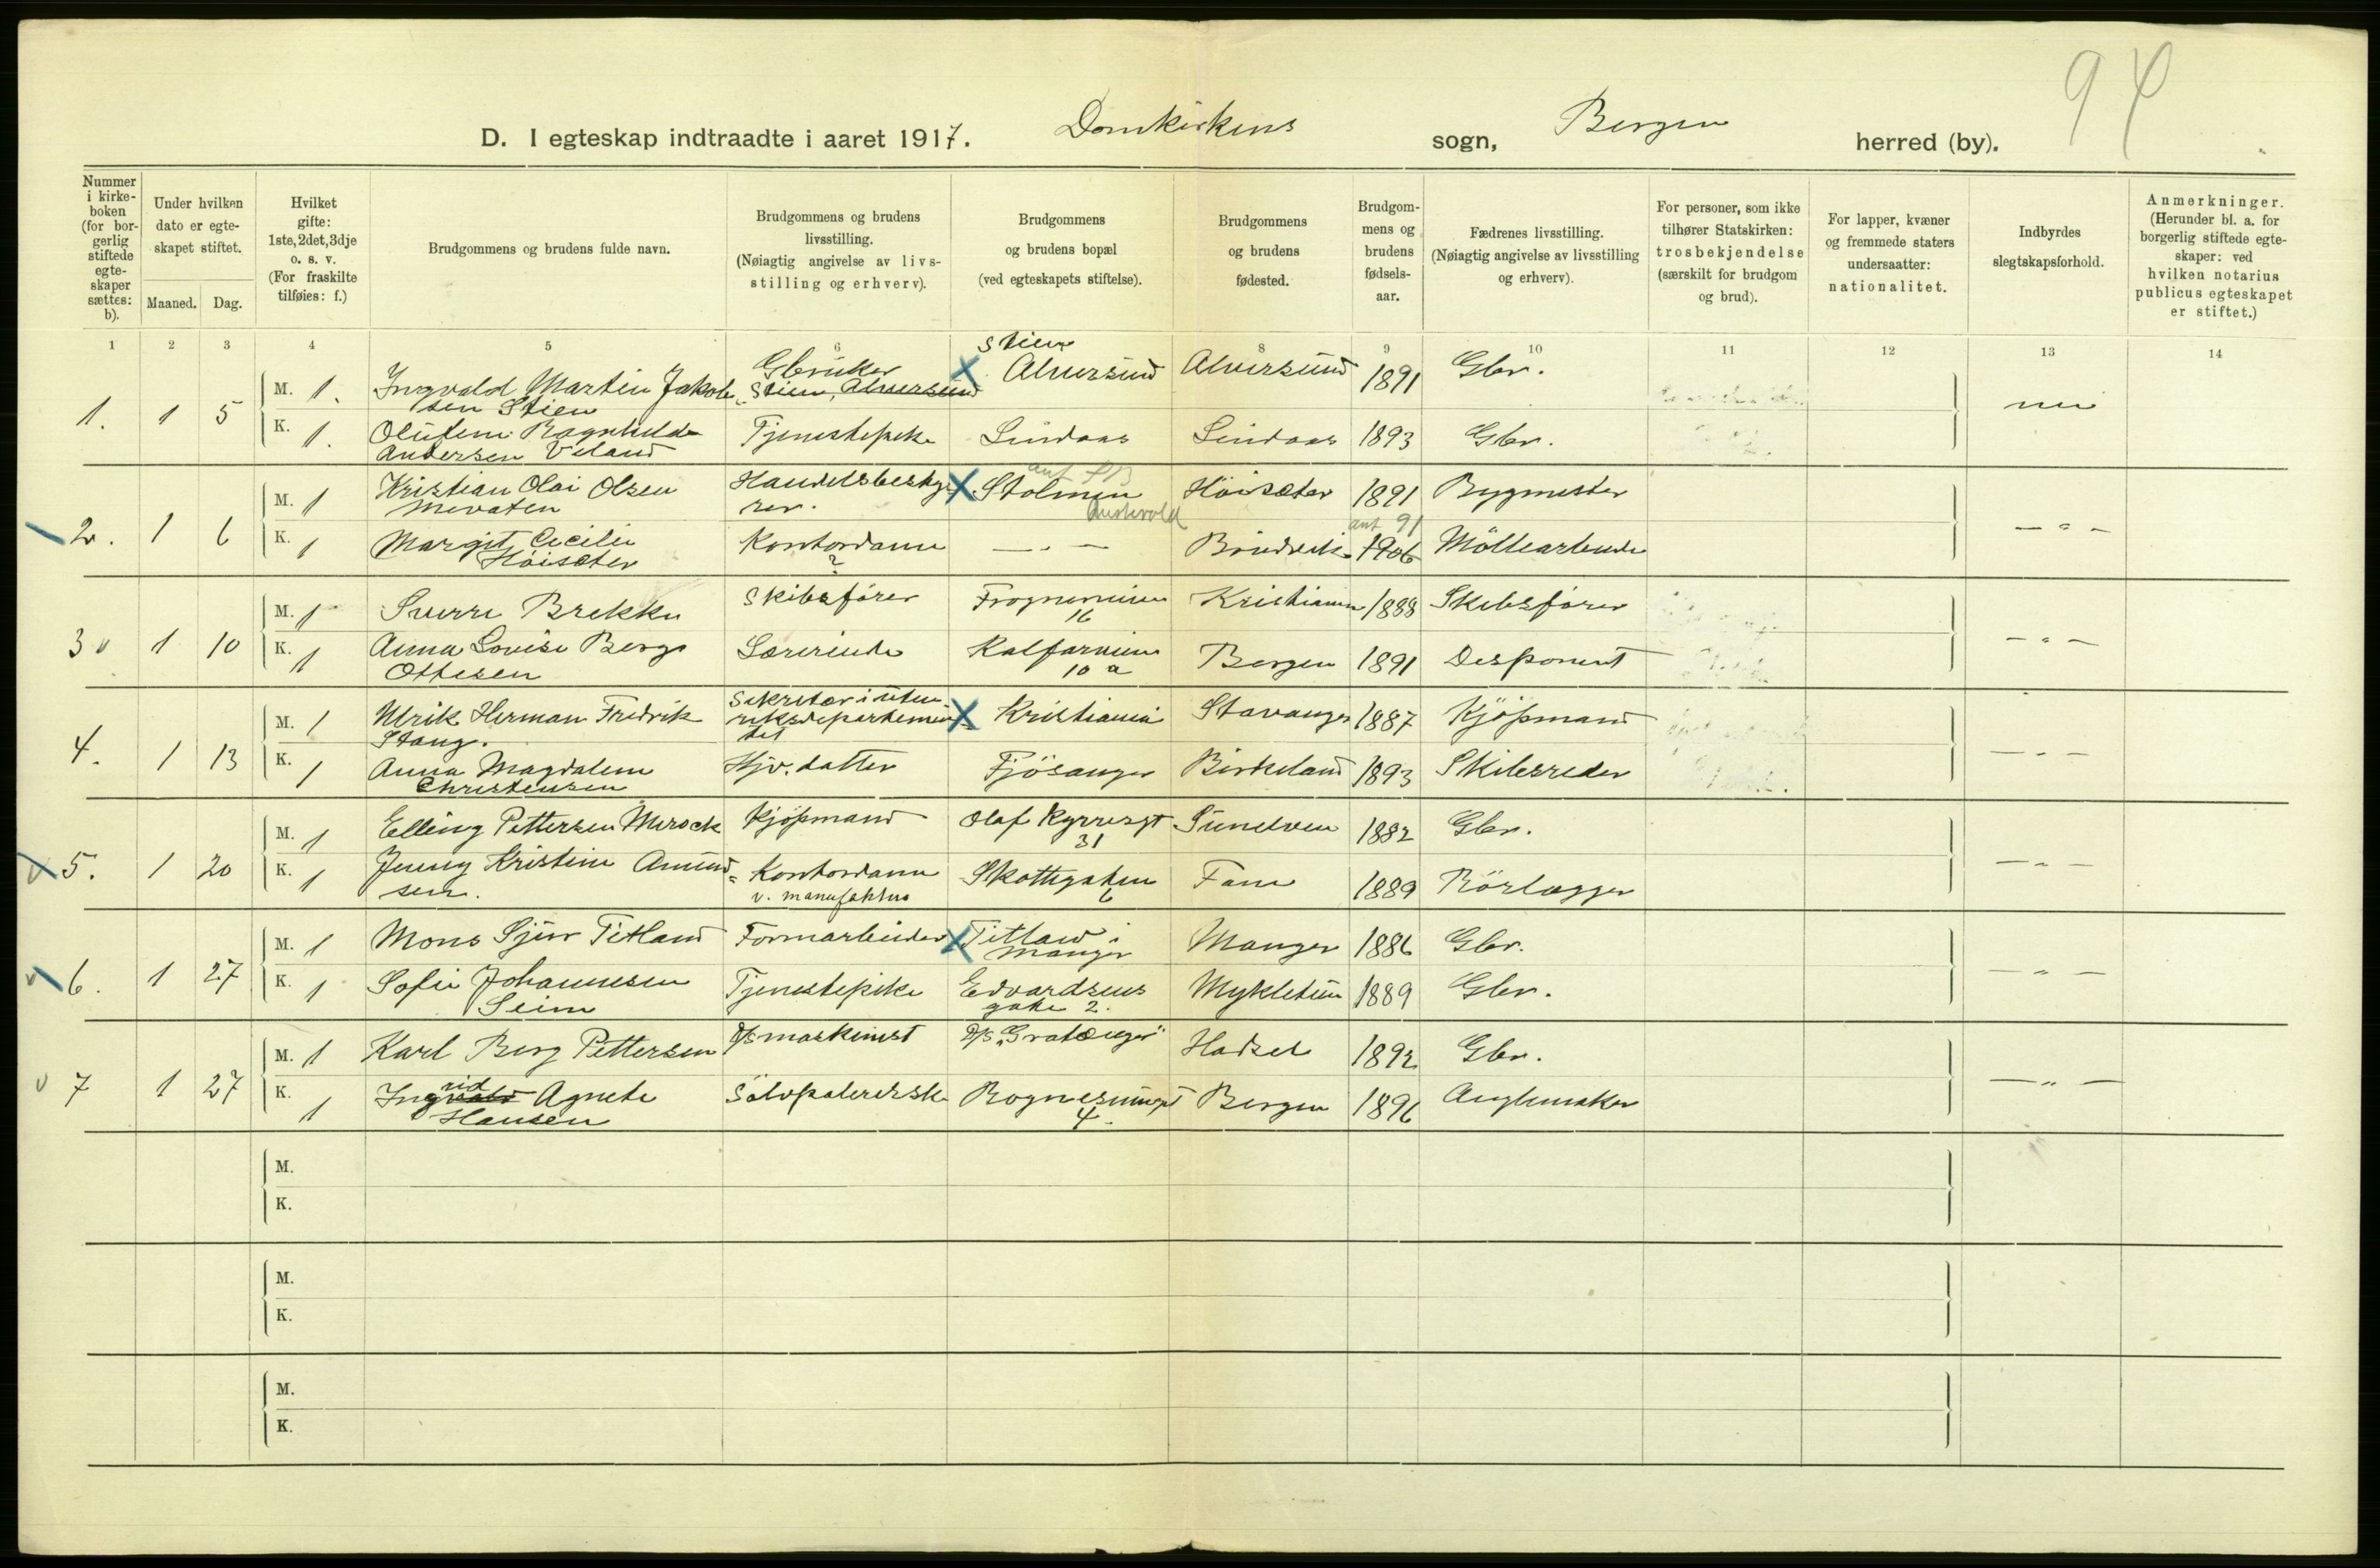 94
D. I egteskap indtraadte i aaret 1917. Domkirkens sogn, Bergen herred (by).
Nummer i kirke-boken (for bor-gerlig stiftede egte-skaper sættes: b).
Under hvilken dato er egte-skapet stiftet.
Maaned. Dag.
Hvilket gifte: 1ste, 2det, 3dje o. s. v. (For fraskilte tilføies: f.)
Brudgommens og brudens fulde navn.
Brudgommens og brudens livsstilling. (Nøiagtig angivelse av livs-stilling og erhverv).
Brudgommens og brudens bopæl (ved egteskapets stiftelse).
Brudgommens og brudens fødested.
Brudgom-mens og brudens fødsels-aar.
Fædrenes livsstilling. (Nøiagtig angivelse av livsstilling og erhverv).
For personer, som ikke tilhører Statskirken: trosbekjendelse (særskilt for brudgom og brud).
For lapper, kvæner og fremmede staters undersaatter: nationalitet.
Indbyrdes slegtskapsforhold.
Anmerkninger. (Herunder bl. a. for borgerlig stiftede egte-skaper: ved hvilken notarius publicus egteskapet er stiftet.)
1 2 3 4 5 6 8 9 10 11 12 13 14
1. 1 5 M. 1. Ingvald Martin Jakob-sen Stien Gbruker Stien, Alversund Stien Alversund Alversund 1891 Gbr. nei
K. 1. Olufine Ragnhilda Andersen Viland Tjenestepike Lindaas Lindaas 1893 Gbr.
2. 1 6 M. 1 Kristian Olai Olsen Møvaten Handelsbesty-rer. Stolmen Austevold Höisæter 1891 Bygmester — " —
K. 1 Margit Cecilie Höisæter Kontordame ? — " — 1906 ant 91 Möllearbeider
3 1 10 M. 1 Sverre Brekke Skibsfører Frognerveien 16 Kristiania 1888 Skibsfører — " —
K. 1 Anna Lovise Berge Ottesen Lærerinde Kalfarveien 10 a Bergen 1891 Disponent
4. 1 13 M. 1 Ulrik Herman Fredrik Stang. Sekretær i uten-riksdepartemen-tet Kristiania Stavanger 1887 Kjøpmand — " —
K. 1 Anna Magdalene Christensen Hjv. datter Fjösanger Birkeland 1893 Skibsreder
5. 1 20 M. 1 Elling Pettersen Merock Kjøpmand Olaf Kyrresgt 31 Sunelven 1882 Gbr. — " —
K. 1 Jenny Kristine Amund-sen. Kontordame v. manufaktur Skottegaten 6 Fane 1889 Rörlægger
6. 1 27 M. 1 Mons Sjur Titland Formarbeider Titland i Manger Manger 1886 Gbr. — " —
K. 1 Sofie Johannesen Seim Tjenestepike Edvardsens gate 2. Mykletun 1889 Gbr.
7 1 27 M. 1 Karl Berg Pettersen D/S maskinist D/S "Gratangen" Hadsel 1892 Gbr. — " —
K. 1 Ingrid Agnete Hansen Sölvpolererske Rognesmuget 4. Bergen 1896 Anglemaker
M.
K.
M.
K.
M.
K.